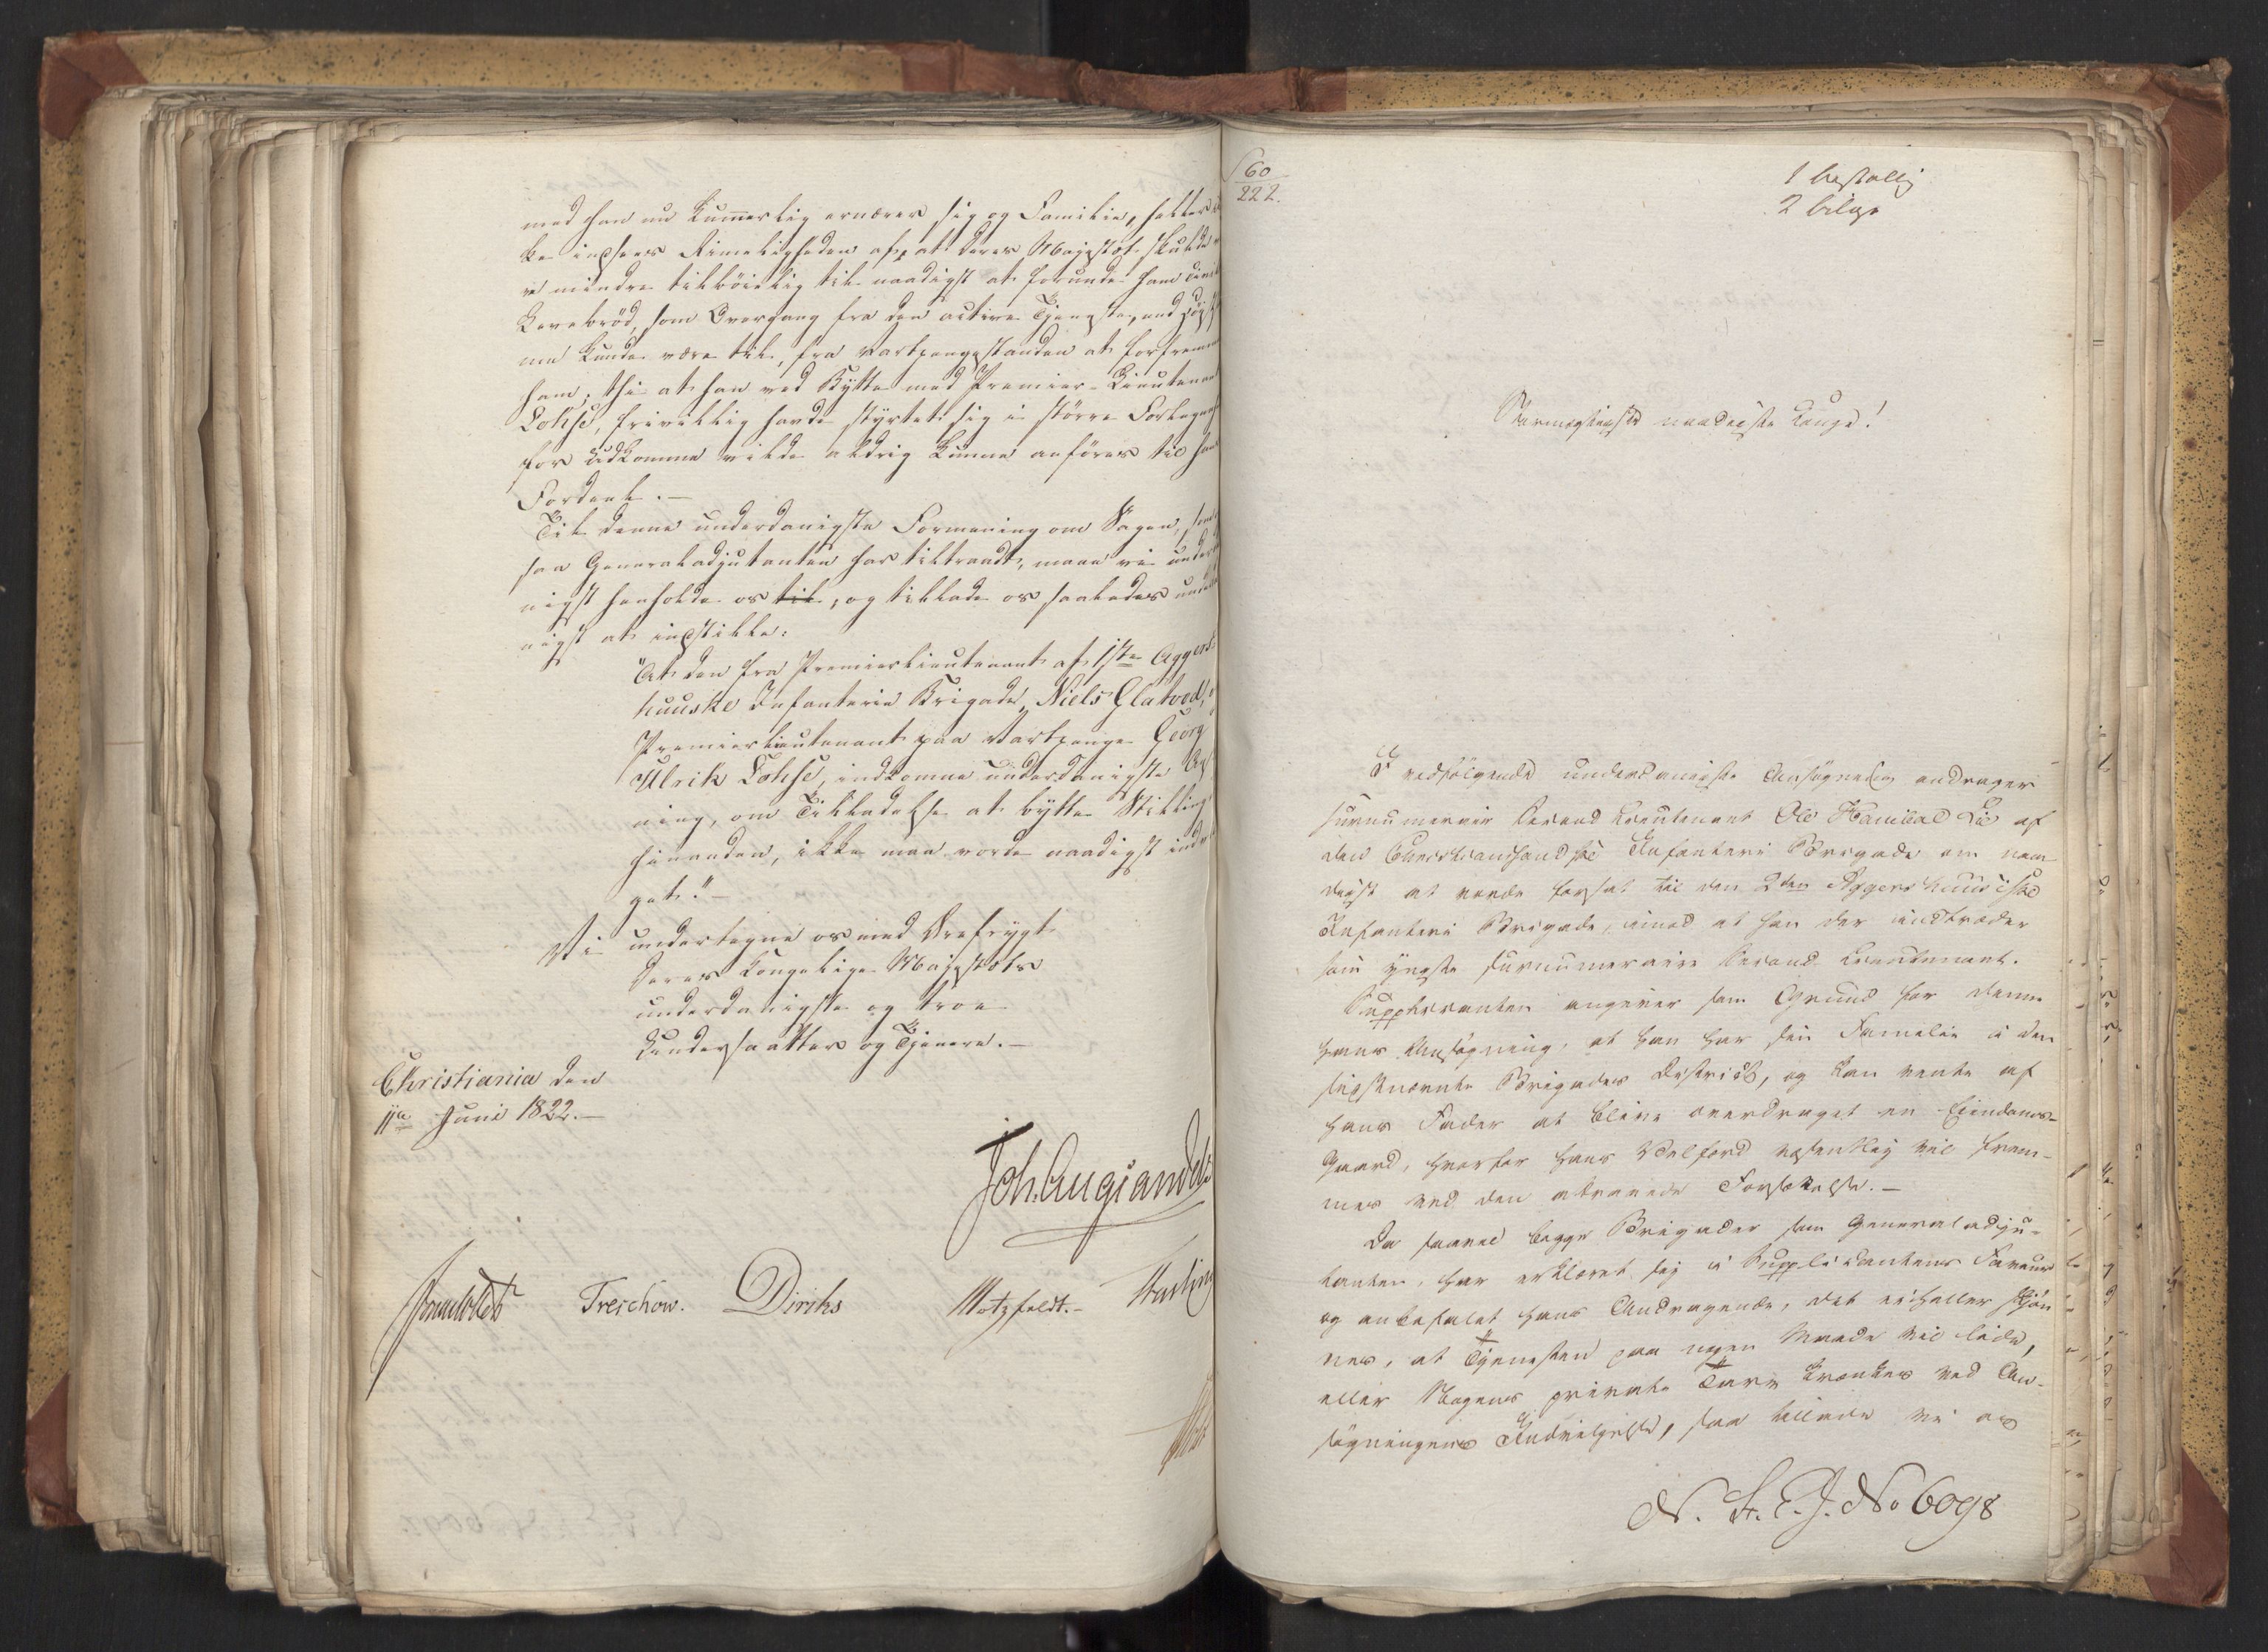 med han nu kummerlig ernærer sig og Familie, heller
ke indsees Rimeligheden af, at Deres Majestæt skulde
mindre tilbøielig til naadigst at forunde ham
Levebrød, som Overgang fra den active Tjeneste, end
kunde være til, fra Vartpengestanden at forfremme
ham; thi at han ved Bytte med Premier-Lieutenant
Lohse, frivillig havde styrtet sig i større Forlegenhed
for Udkomme vilde aldrig kunne anføres til hans
Fordeel.-
Til denne underdanigste Formening om Sagen,
saa Generaladjutanten har tiltraadt, maae vi under
nigst henholde os til, og tillade os saaledes under
nigst at indstille:
"At den fra Premierlieutenant af 1ste Aggers-
huuske Infanterie Brigade, Niels Glatved,
Premierlieutenant paa Vartpenge Georg
Ulrik Lohse, indkomne underdanigste
ning, om Tilladelse at bytte Stilling
hinanden, ikke maa vorde naadigst
get."-
Vi undertegne os med Ærefrygt
Deres Kongelige Majestæts
underdanigste og troe
Undersaatter og Tjenere.-
Christiania den
11te Juni 1822.-
Joh. Aug. Sandels
Sommerhielm Treschow. Diriks Motzfeldt.-
60
222.
1 bestallg
2 bilage
Stormægtigste naadigste Konge!
I vedfølgende underdanigste Ansøgning andrager
surnumerair Second Lieutenant Ole Lie af
den Christiansandske Infanteri Brigade om naa-
digst at vorde forsat til den 2den Aggershuusiske
Infanteri Brigade, imod at han der indtræder
som yngste surnumeraire Second Lieutenant.
Supplicanten angiver som Grund for denne
hans Ansøgning, at han har sin Familie i den
sidstnævnte Brigades District, og kan vente af
hans Fader at blive overdraget en Eiendoms-
Gaard, hvorfor hans Velferd væsentlig vil frem-
mes ved den attraaede Forsættelse.-
Da saavel begge Brigader som Generaladju-
tanten, har erklæret sig i Supplicantens Faveur
og anbefalet hans Andragende, det ei heller skjøn
nes, at Tjenesten paa nogen Maade vil lide,
eller Nogens private Tarv krænkes ved An-
søgningens Indvilgelse, saa tillade vi os
N. St. E. J. No 6098